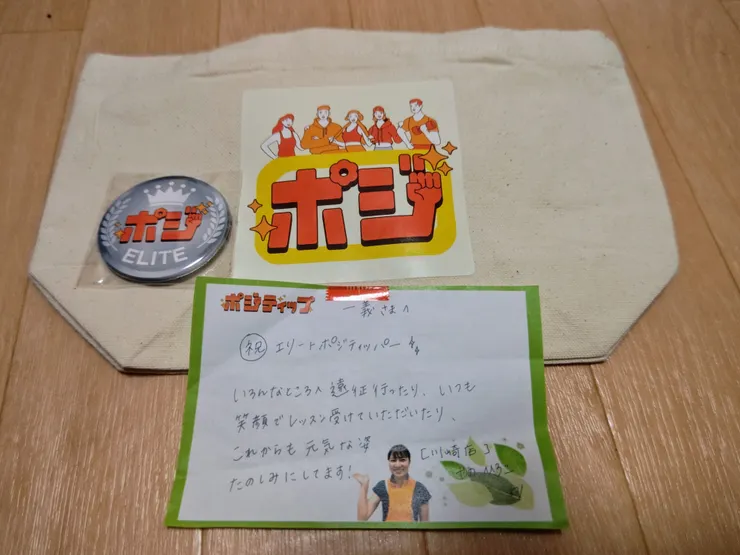 ポジ
ポジ
ELITE
ポジティップ
一義さまへ
祝 エリートポジティッパー
いろんなところへ遠征行ったり、いつも
笑顔でレッスン受けていただいたり、
これからも元気な姿
たのしみにしてます!
[川崎店]
ひろこ